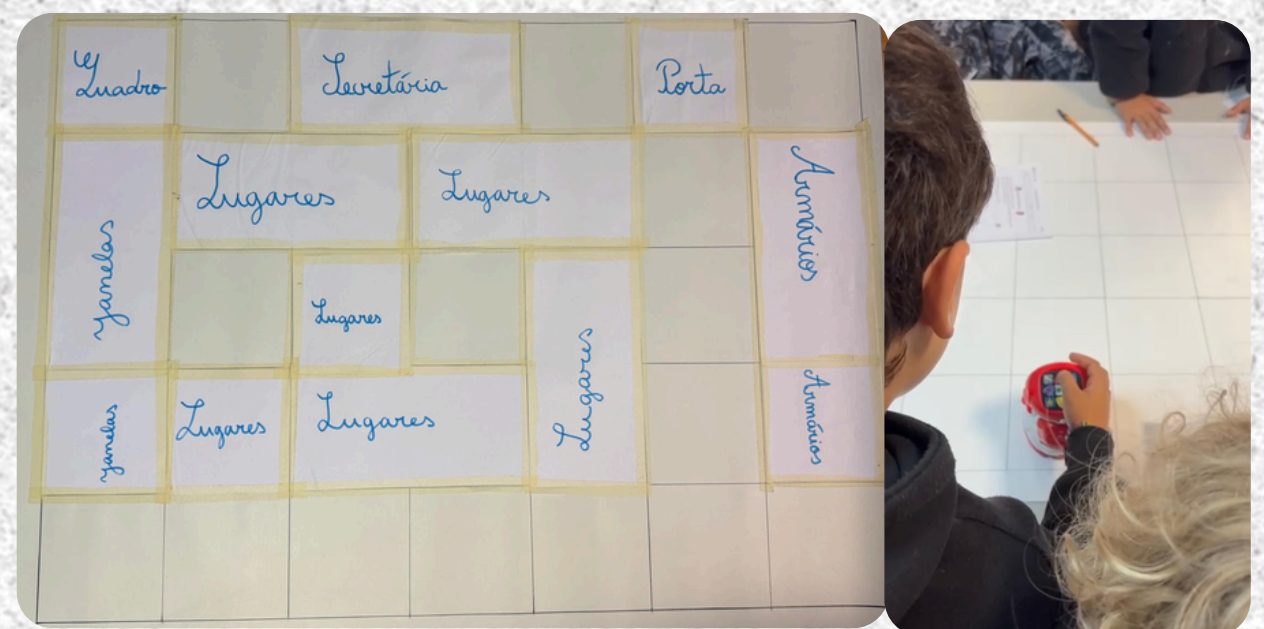 Quadro
Secretária
Porta
Janelas
Lugares
Lugares
Armários
Lugares
Lugares
Janelas
Lugares
Lugares
Armários